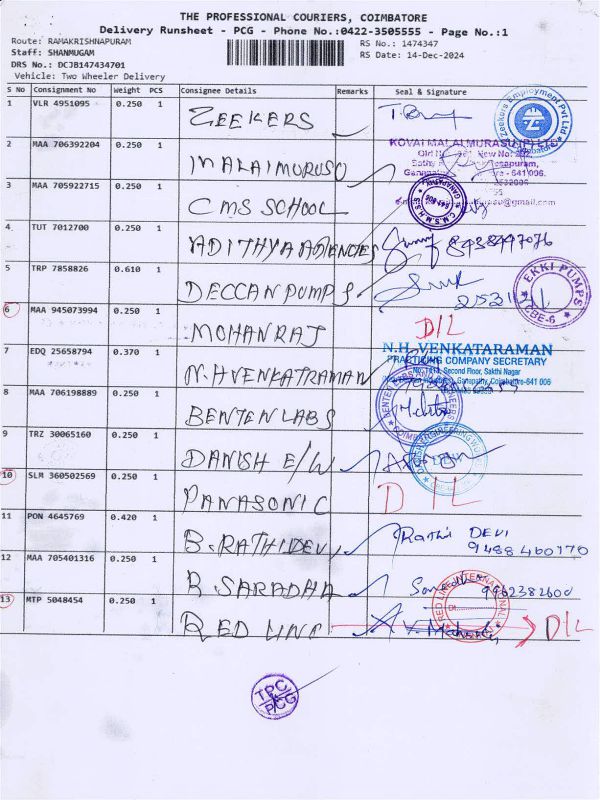 THE PROFESSIONAL COURIERS, COIMBATORE
Delivery Runsheet - PCG - Phone No.:0422-3505555 - Page No.:1
Route: RAMAKRISHNAPURAM
RS No.: 1474347
Staff: SHANMUGAM
RS Date: 14-Dec-2024
DRS No.: DCJB147434701
Vehicle: Two Wheeler Delivery
S No Consignment No Weight PCS Consignee Details Remarks Seal & Signature
1 VLR 4951095 0.250 1 ZEEKERS
Zeekers Employment Pvt Ltd
2 MAA 706392204 0.250 1 MALAIMURUSO
KOVAI MALAIMURASU (P) LTD
641 006.
3 MAA 705922715 0.250 1 CMS SCHOOL
4 TUT 7012700 0.250 1 ADITHYA AGENCIES 8938497076
5 TRP 7858826 0.610 1 DECCAN PUMPS
EKKI PUMPS
CBE-6
6 MAA 945073994 0.250 1 MOHANRAJ D/L
7 EDQ 25658794 0.370 1 N.H VENKATRAMAN
N.H. VENKATARAMAN
PRACTICING COMPANY SECRETARY
Second Floor, Sakthi Nagar
Ganapathy, Coimbatore-641 006
8 MAA 706198889 0.250 1 BENTEN LABS
9 TRZ 30065160 0.250 1 DANISH E/W
10 SLM 360502569 0.250 1 PANASONIC D/L
11 PON 4645769 0.420 1 B. RATHIDEVI Rathi DEVI
9488460170
12 MAA 705401316 0.250 1 R. SARADHA 9962382600
13 MTP 5048454 0.250 1 RED LINE D/L
RED LINE INTERNATIONAL
TPC
PCG